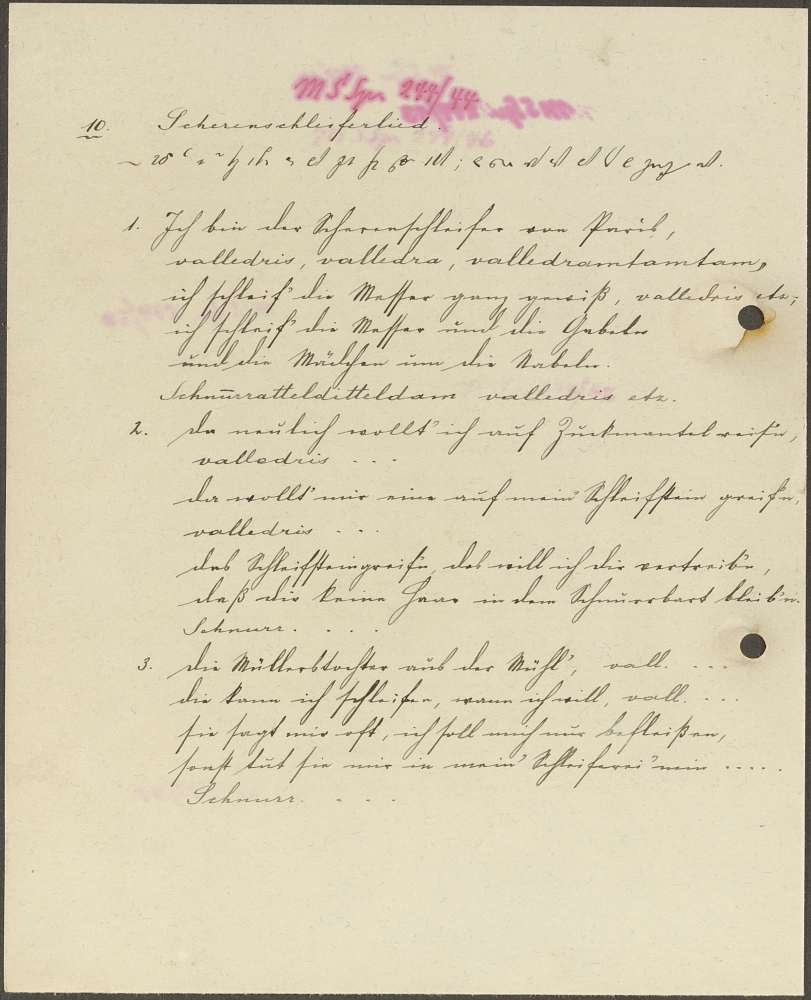 MS Spr 277/44
10. Scherenschleiferlied.
1. Ich bin der Scherenschleifer von Paris,
valledris, valledra, valledramtamtam,
ich schleif' die Messer ganz gewiß, valledris etz;
ich schleif' die Messer und die Gabeln
und die Mädchen um die Nabeln.
Schnurratteldittteldam valledris etz.
2. Da neulich wollt' ich auf Zuckmantel reis'n,
valledris . . .
da wollt' mir eine auf mein' Schleifstein greif'n,
valledris . . .
das Schleifsteingreif'n, das will ich dir vertreib'n,
daß dir keine Haar in dem Schnurrbart bleib'n.
Schnurr. . . .
3. Die Müllerstochter aus der Mühl', vall. . . .
die kann ich schleifen, wann ich will, vall. . . .
sie sagt mir oft, ich soll mich nur befleißen,
sonst tut sie mir in mein' Schleiferei 'nein . . . . .
Schnurr. . . .